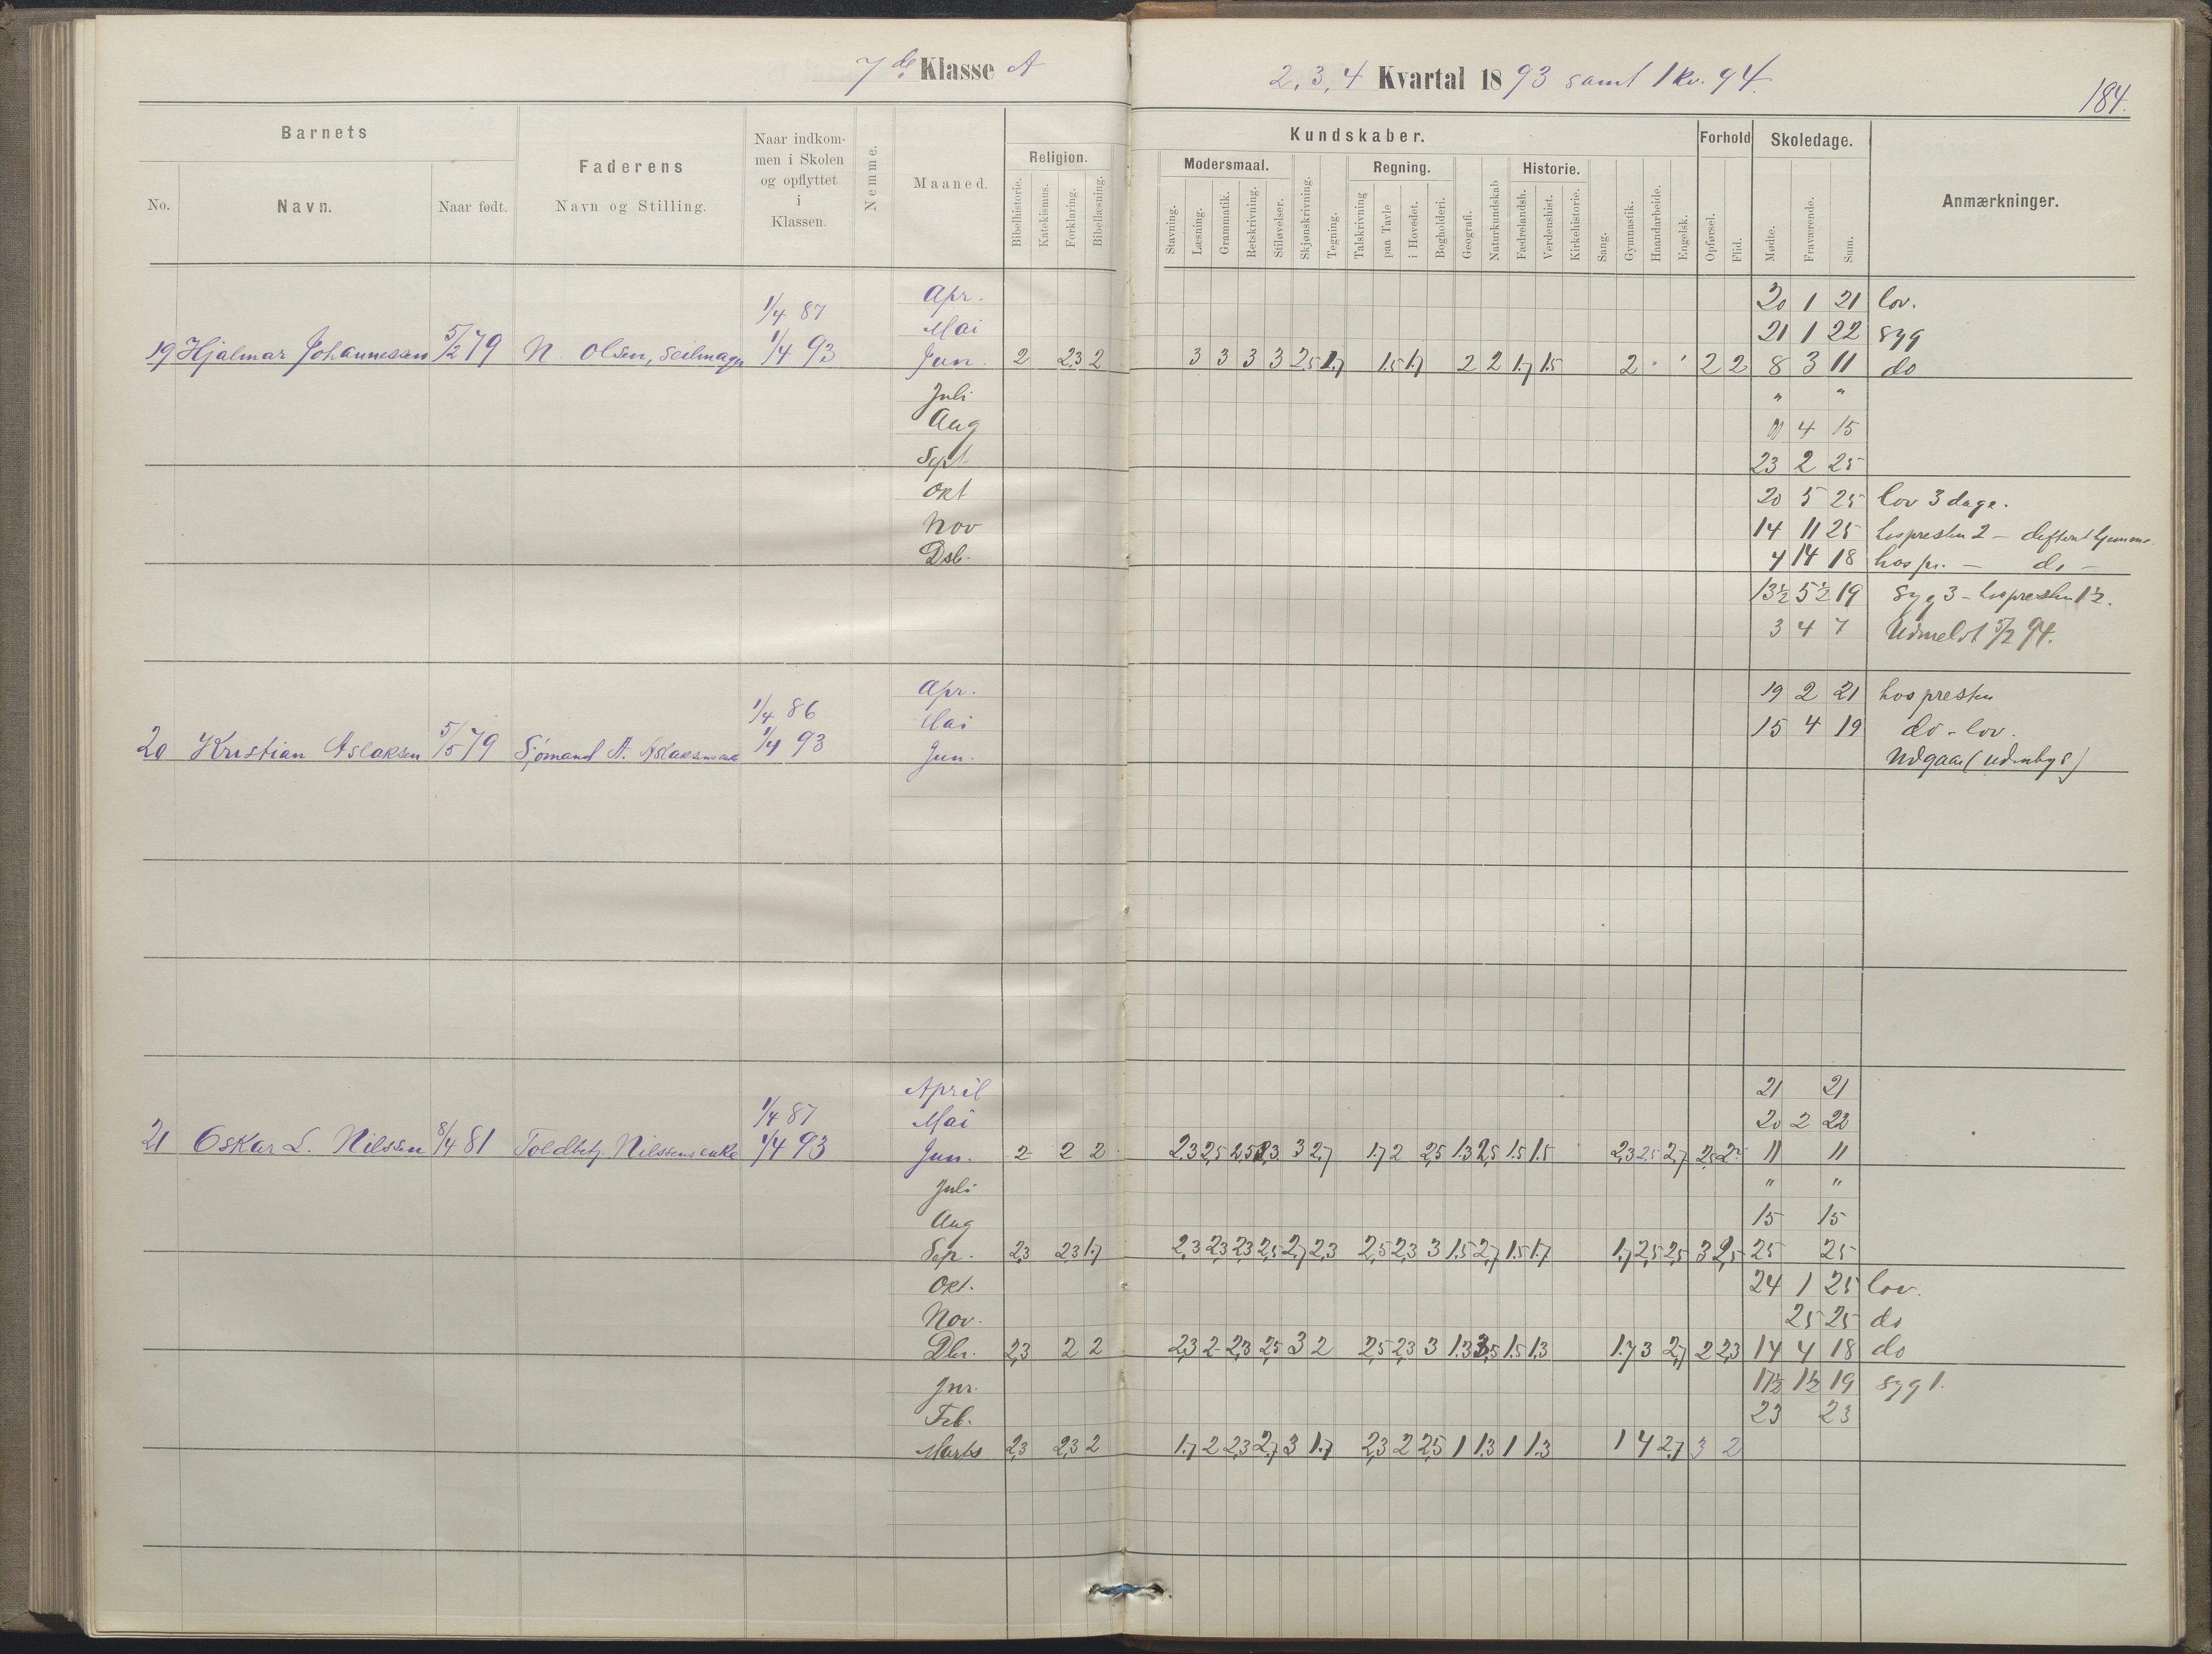 7de Klasse A
2, 3, 4 Kvartal 1893 samt 1 kv. 94.
184.
Barnets
No.
Navn.
Naar født.
Faderens
Navn og Stilling.
Naar indkom-
men i Skolen
og opflyttet
i
Klassen.
Nemme.
Maaned.
Religion.
Bibelhistorie.
Katekismus.
Forklaring.
Bibellæsning.
Kundskaber.
Modersmaal.
Stavning.
Læsning.
Grammatik.
Retskrivning.
Stiløvelser.
Skjønskrivning.
Tegning.
Regning.
Talskrivning
paa Tavle
i Hovedet.
Bogholderi.
Geografi.
Naturkundskab
Historie.
Fædrelandsh.
Verdenshist.
Kirkehistorie.
Sang.
Gymnastik.
Haandarbeide.
Engelsk.
Forhold
Opførsel.
Flid.
Skoledage.
Mødte.
Fraværende.
Sum.
Anmærkninger.
Apr. 20 1 21 lov.
1/4 87 Mai 21 1 22 syg
19 Hjalmar Johannessen 5/2 79 N. Olsen, seilmager 1/4 93 Jun. 2 2,3 2 3 3 3 3 2,5 1,7 1.5 1,7 2 2 1,7 1.5 2 2 2 8 3 11 do
Juli " "
Aug 4 15
Sept 23 2 25
Okt 20 5 25 lov 3 dage.
Nov 14 11 25 hos presten 2 -
Dsb. 4 14 18 hos pr. - do -
13½ 5½ 19 syg 3 - hos presten 1½.
3 4 7 Udmeldt 5/2 94.
Apr. 19 2 21 hos presten
1/4 86 Mai 15 4 19 do - lov.
20 Kristian Aslaksen 5/5 79 Sjømand A. Aslaksens enke 1/4 93 Jun. Udgaar (udenbys)
April 21 21
1/4 87 Mai 20 2 22
21 Oskar L. Nilssen 8/4 81 Toldbetj. Nilssens enke 1/4 93 Jun. 2 2 2 2.3 2,5 2.5 2.3 3 2,7 1.7 2 2,5 1.3 2,5 1.5 1.5 2,3 2.5 2,7 2,5 2 11 11
Juli " "
Aug 15 15
Sep. 2,3 2,3 1.7 2,3 2,3 2,3 2,5 2,7 2,3 2,5 2,3 3 1.5 2,7 1.5 1.7 1,7 2,5 2,5 3 2,5 25 25
Okt. 24 1 25 lov.
Nov. 25 25 do
Dbr. 2,3 2 2 2,3 2 2,3 2,5 3 2 2,5 2,3 3 1.3 1.5 1.3 1.7 3 2,7 2 2,3 14 4 18 do
Jnr. 17½ 1½ 19 syg 1.
Feb. 23 23
Marts 2,3 2,3 2 1.7 2 2,3 2,7 3 1.7 2,3 2 2,5 1 1.3 1 1.3 1 4 2,7 3 2